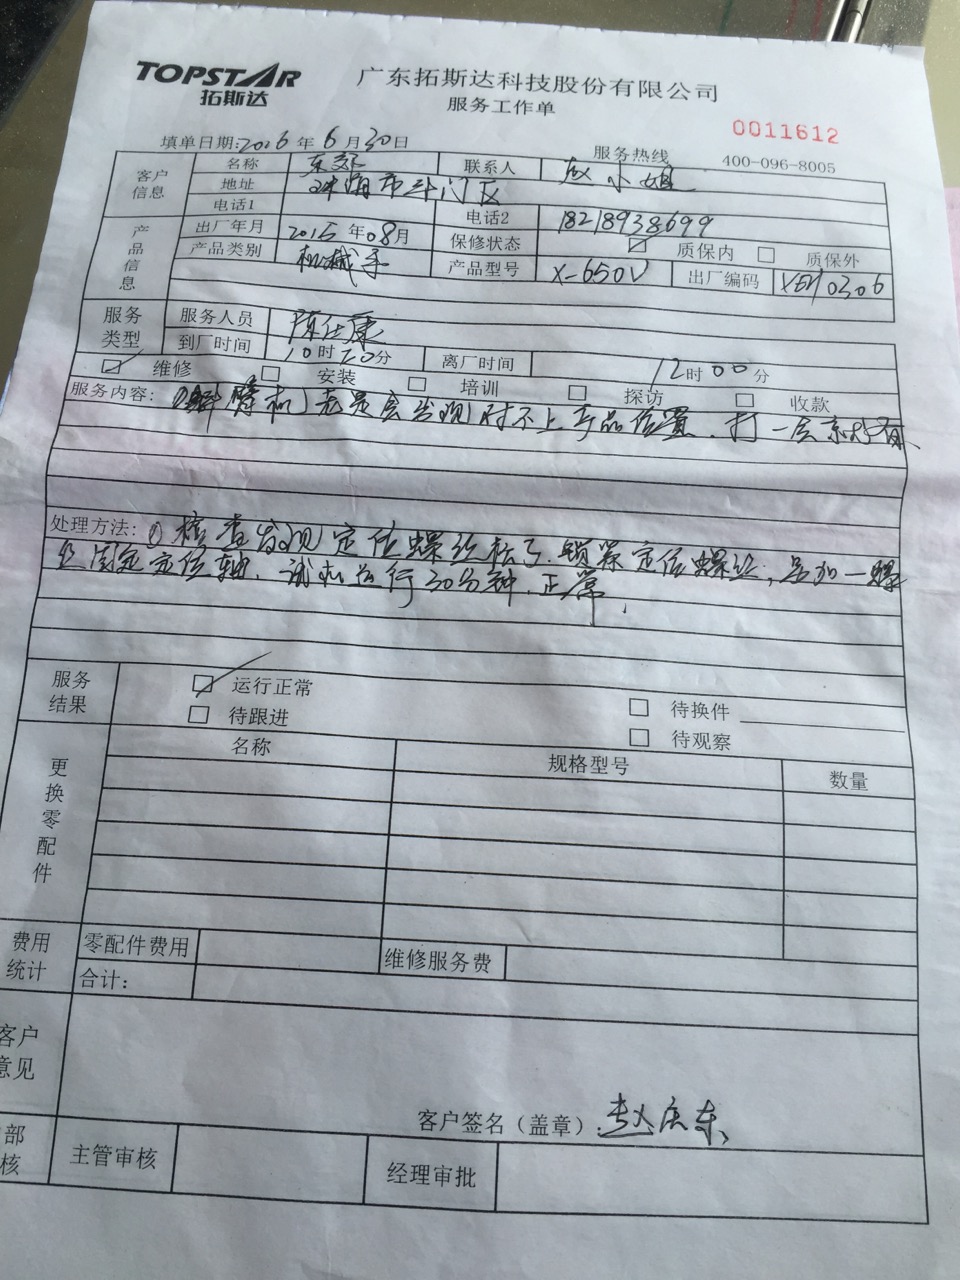 TOPSTAR
拓斯达
广东拓斯达科技股份有限公司
服务工作单
0011612
填单日期:2016年6月30日
服务热线 400-096-8005
客户信息
名称
联系人 赵小姐
地址 珠海市斗门区
电话1
电话2 18218938699
产品信息
出厂年月 2015年08月
保修状态 质保内 质保外
产品类别 机械手
产品型号 X-650V
出厂编码
服务类型
服务人员 陈仕康
到厂时间 10时20分
离厂时间 12时00分
维修 安装 培训 探访 收款
服务内容: 老是会发现对不上产品位置、打一会
处理方法: ① 检查发现定位螺丝松了、锁紧定位螺丝,另加一螺
丝固定定位轴、试机运行30分钟、正常,
服务结果
运行正常
待换件
待跟进
待观察
更换零配件
名称
规格型号
数量
费用统计
零配件费用
维修服务费
合计:
客户意见
客户签名(盖章) 赵庆东
部
核
主管审核
经理审批